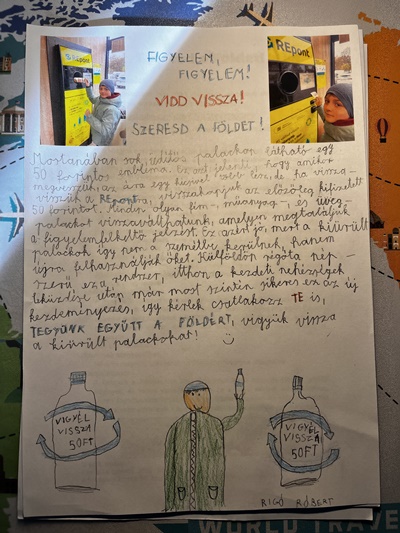 REpont
REpont
FIGYELEM,
FIGYELEM!
VIDD VISSZA!
SZERESD A FÖLDET!
Mostanában sok üdítős palackon látható egy
50 forintos embléma. Ez azt jelenti, hogy amikor
megvesszük, az ára egy kicsivel több lesz, de ha vissza-
visszük a REpontra, visszakapjuk az előzőleg kifizetett
50 forintot. Mindig olyan fém-, műanyag-, és üveg-
palackot visszaválthatunk, amelyen megtaláljuk
a figyelemfelkeltő jelzést. Ez azért jó, mert a kiürült
palackok így nem a szemétbe kerülnek, hanem
újra felhasználják őket. Külföldön régóta nép-
szerű ez a rendszer, itthon a kezdeti nehézségek
leküzdése után már most szintén sikeres ez az új
kezdeményezés, így kérlek csatlakozz TE is,
TEGYÜNK EGYÜTT A FÖLDÉRT, vigyük vissza
a kiürült palackokat!
VIGYÉL
VISSZA
50FT
VIGYÉL
VISSZA
50FT
RIGÓ RÓBERT
WORLD TRAVE